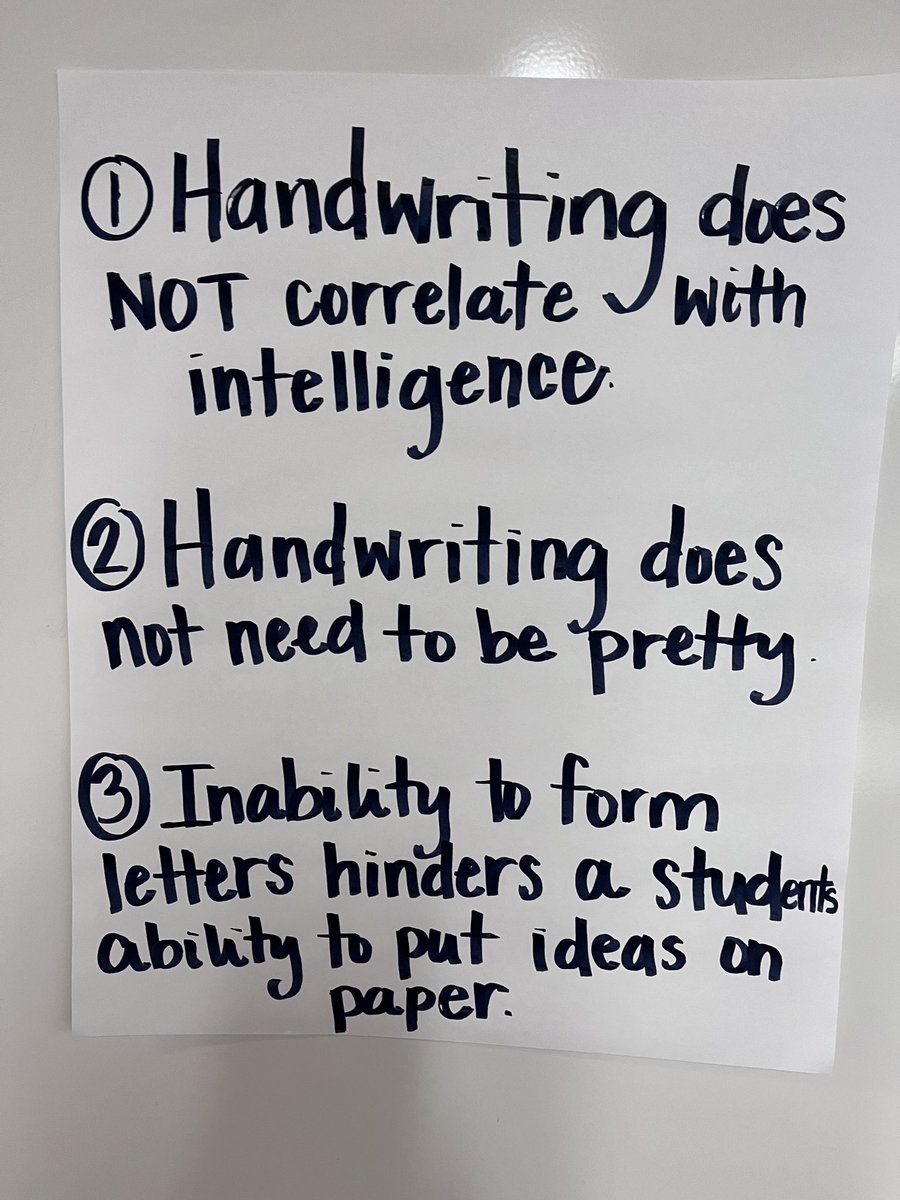 ① Handwriting does
NOT correlate with
intelligence.
② Handwriting does
not need to be pretty.
③ Inability to form
letters hinders a students
ability to put ideas on
paper.